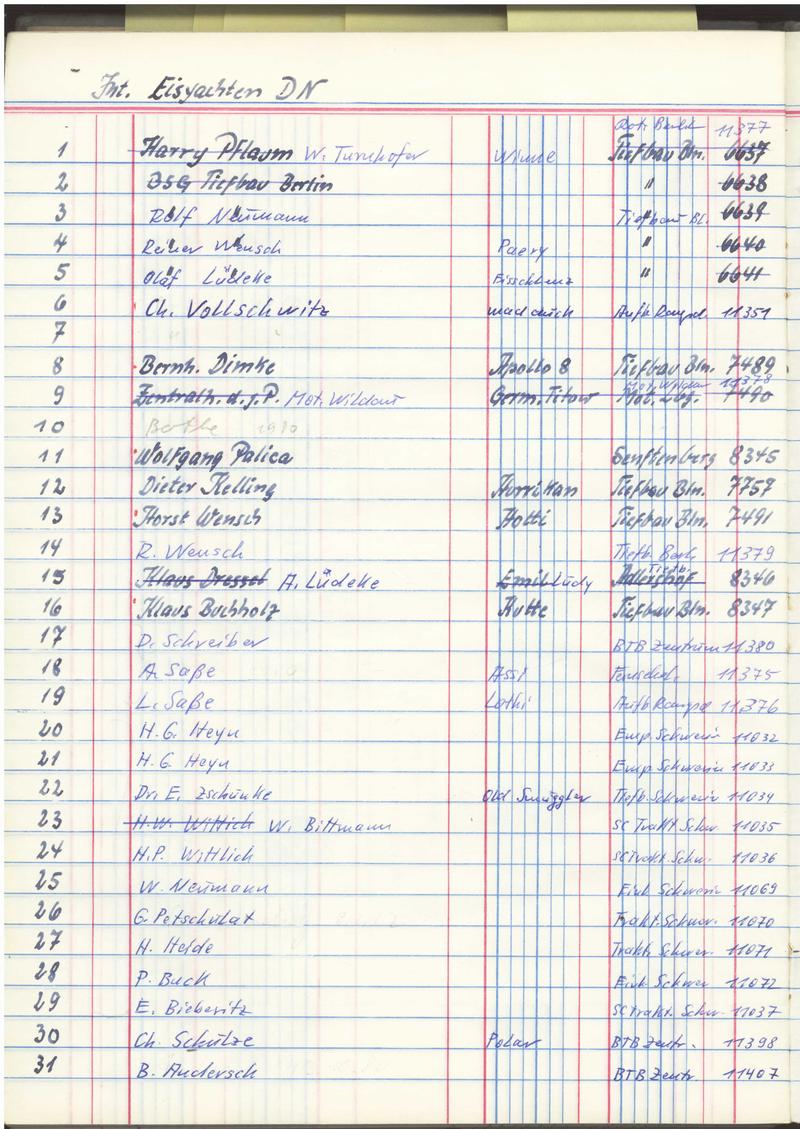 Int. Eisyachten DN
Rot. Berl. 11377
1 Harry Pflaum W. Turnhofer Winne Tiefbau Bln. 6637
2 BSG Tiefbau Berlin " 6638
3 Rolf Neumann Tiefbau Bl. 6639
4 Reiner Wensch Paery " 6640
5 Olaf Lüdeke " 6641
6 Ch. Vollschwitz mad auch Aufb. 11351
7
8 Bernh. Dimke Apollo 8 Tiefbau Bln. 7489
Mot. Wildau 11378
9 Zentralh. d. j. P. Mot. Wildau Germ. Titow Mot. 7490
10 Bothe 1980
11 Wolfgang Palica Senftenberg 8345
12 Dieter Kelling Hurrikan Tiefbau Bln. 7757
13 Horst Wensch Hotti Tiefbau Bln. 7491
14 R. Wensch Tiefb. Berl. 11379
15 Klaus Dressel A. Lüdeke Emil Lüdy Adlershof Tiefb. 8346
16 Klaus Buchholz Kutte Tiefbau Bln. 8347
17 D. Schreiber BTB Zentrum 11380
18 A. Saße Assi 11375
19 L. Saße Lothi Aufb. 11376
20 H.G. Heyn Emp. Schwerin 11032
21 H.G. Heyn Emp. Schwerin 11033
22 Dr. E. Zschunke Old Smuggler Tiefb. Schwerin 11034
23 H.W. Wittlich W. Bittmann SC Trakt. Schw. 11035
24 H.P. Wittlich SC Trakt. Schw. 11036
25 W. Neumann Schwerin 11069
26 G. Petschulat Trakt. Schwer. 11070
27 H. Heide Trakt. Schwer. 11071
28 P. Buck Schwer 11072
29 E. Bieberitz SC Trakt. Schw. 11037
30 Ch. Schulze Polar BTB Zentr. 11398
31 B. Andersch BTB Zentr. 11407